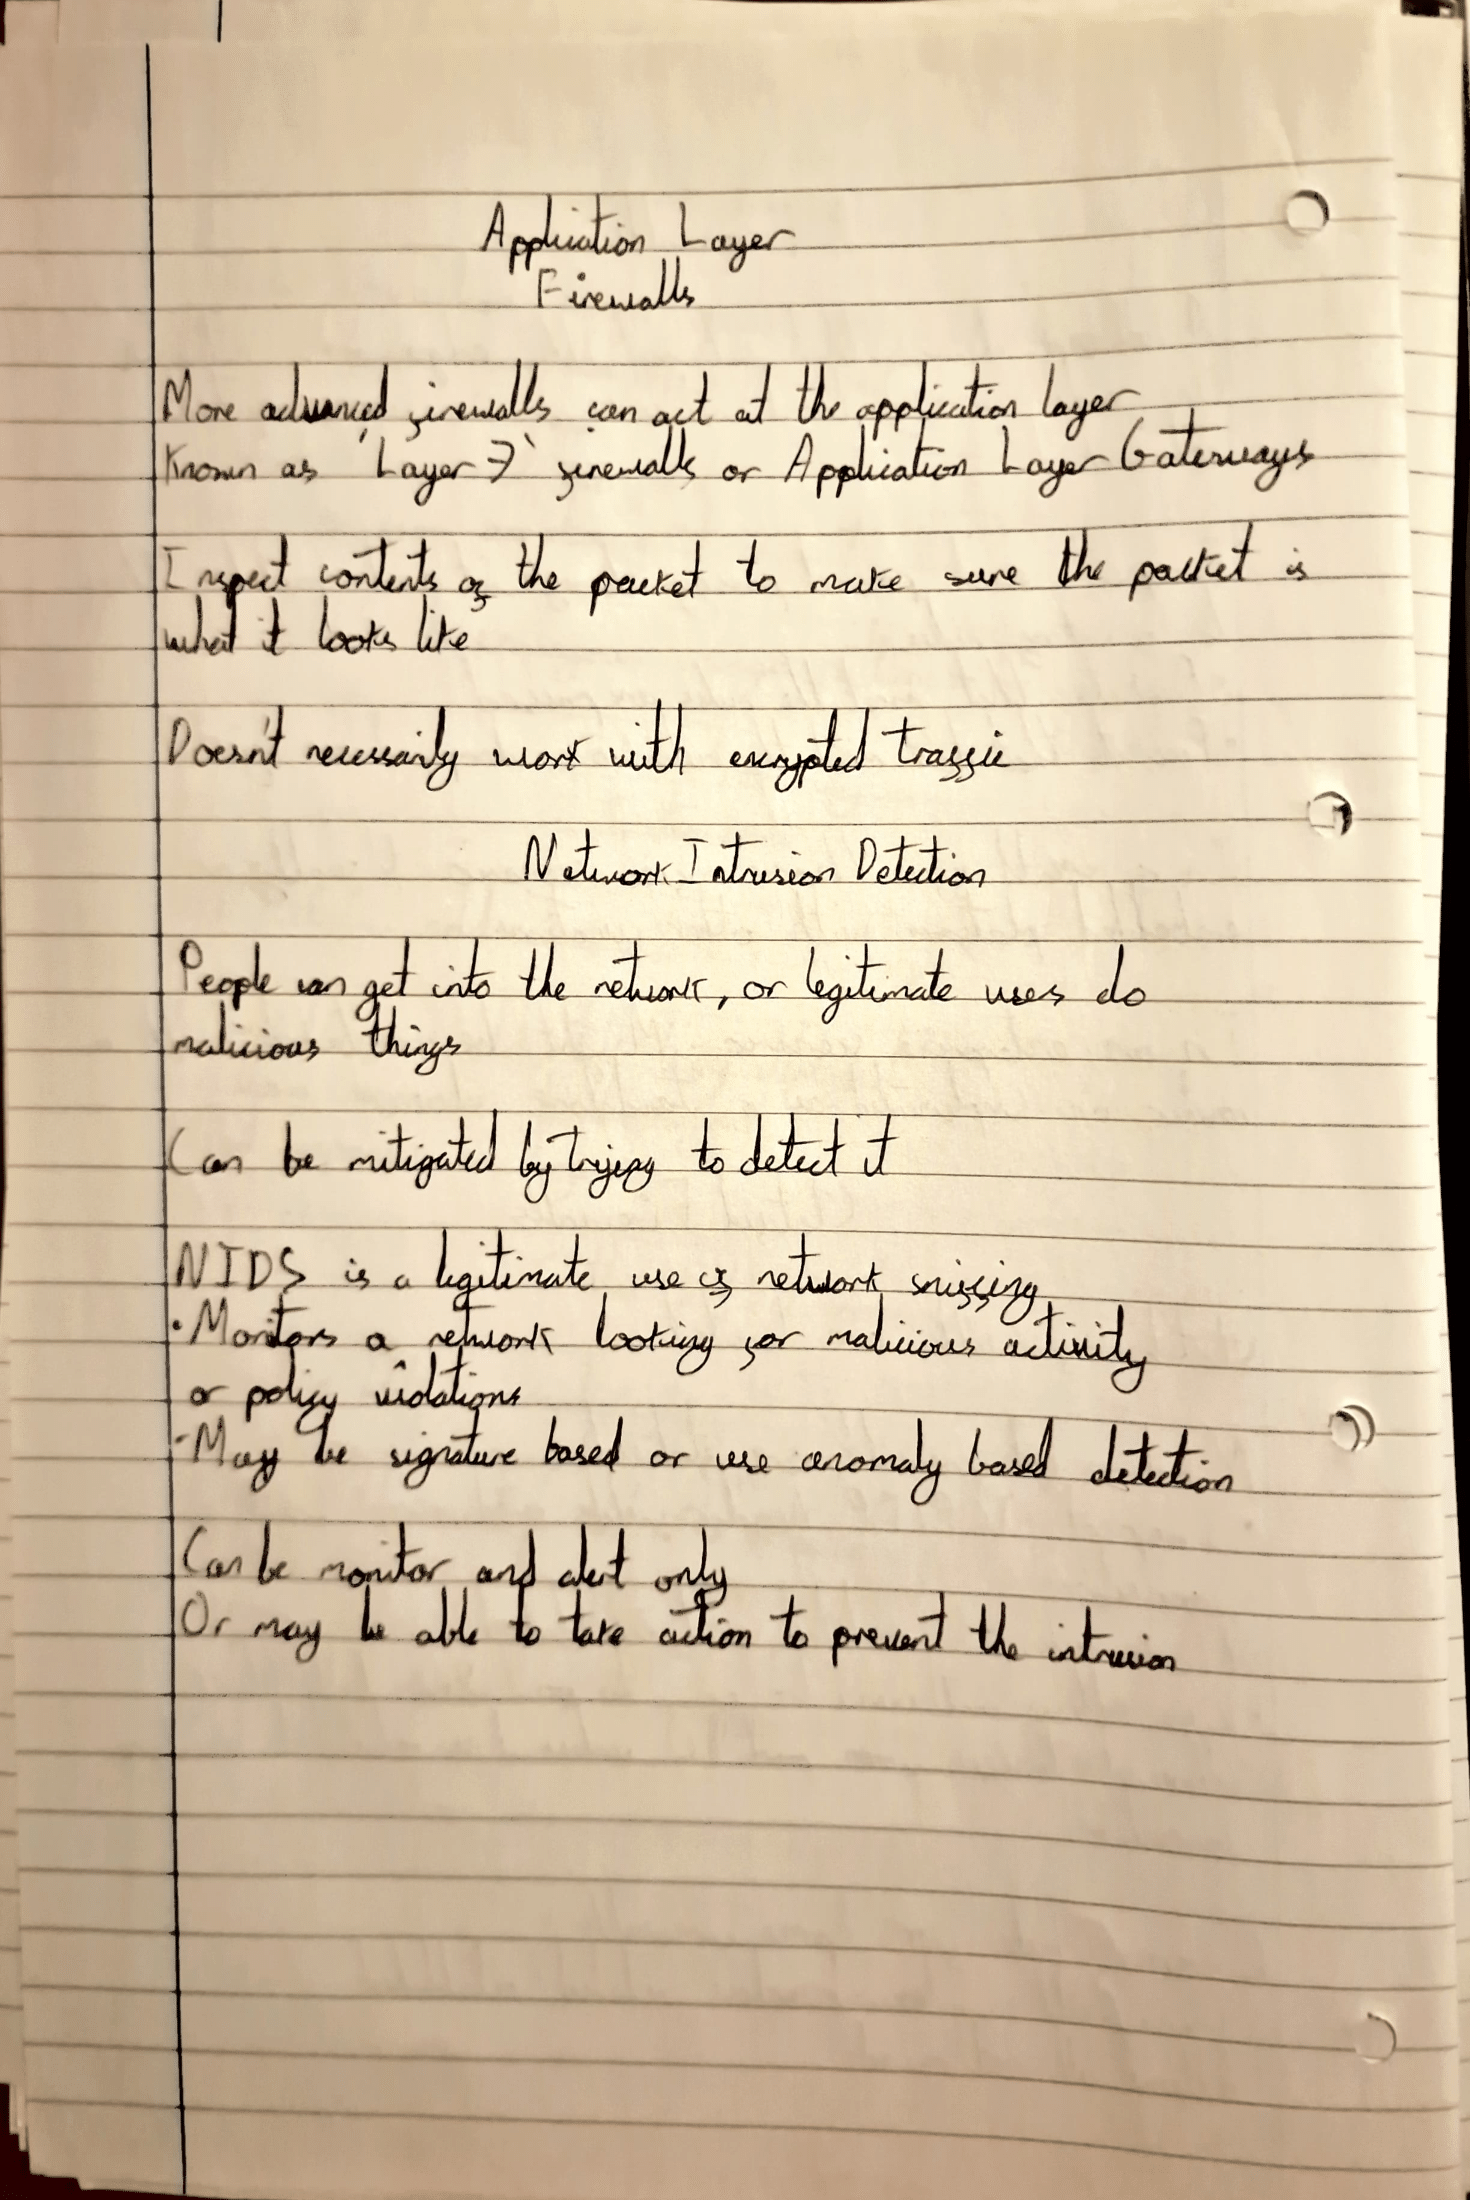 Application Layer
Firewalls
More advanced firewalls can act at the application layer
Known as 'Layer 7' firewalls or Application Layer Gateways
Inspect contents of the packet to make sure the packet is
what it looks like
Doesn't necessarily work with encrypted traffic
Network Intrusion Detection
People can get into the network, or legitimate users do
malicious things
Can be mitigated by trying to detect it
NIDS is a legitimate use of network sniffing
• Monitors a network looking for malicious activity
or policy violations
• May be signature based or use anomaly based detection
Can be monitor and alert only
Or may be able to take action to prevent the intrusion